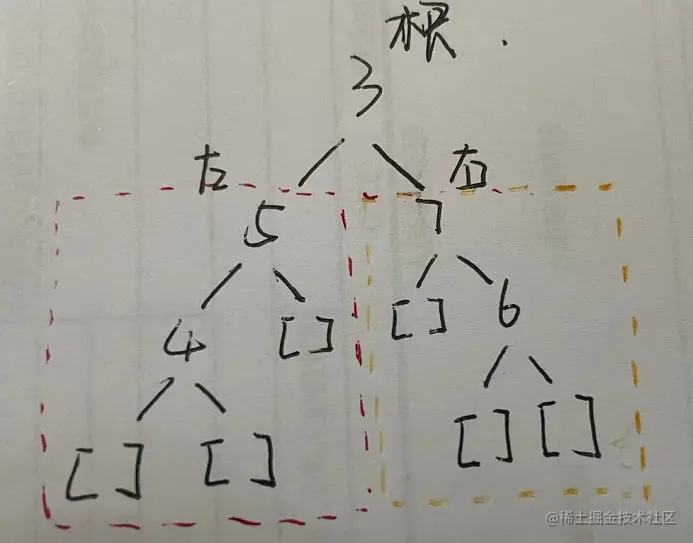 根.
3
左 右
5 7
4 [] [] 6
[] [] [] []
@稀土掘金技术社区